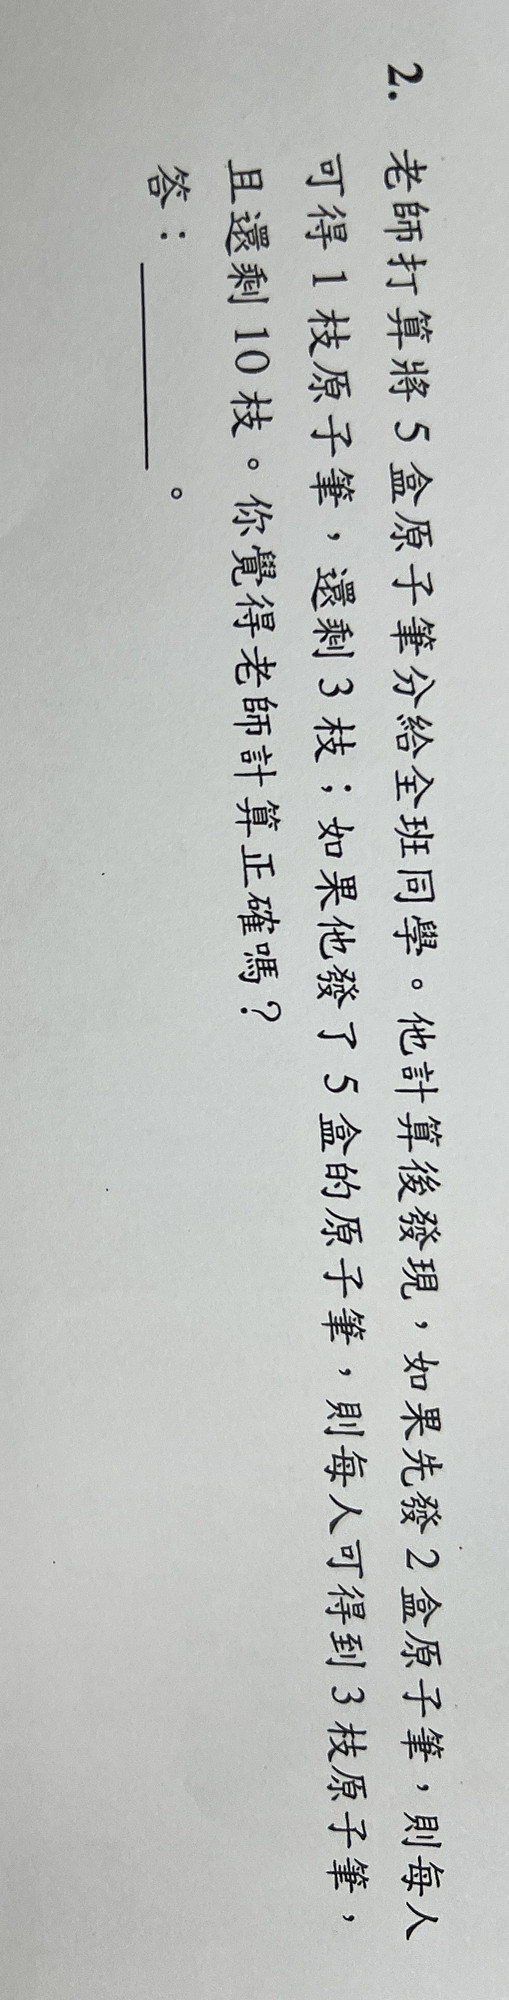 2. 老師打算將 5 盒原子筆分給全班同學。他計算後發現，如果先發 2 盒原子筆，則每人
可得 1 枝原子筆，還剩 3 枝；如果他發了 5 盒的原子筆，則每人可得到 3 枝原子筆，
且還剩 10 枝。你覺得老師計算正確嗎？
答：＿＿＿＿＿。